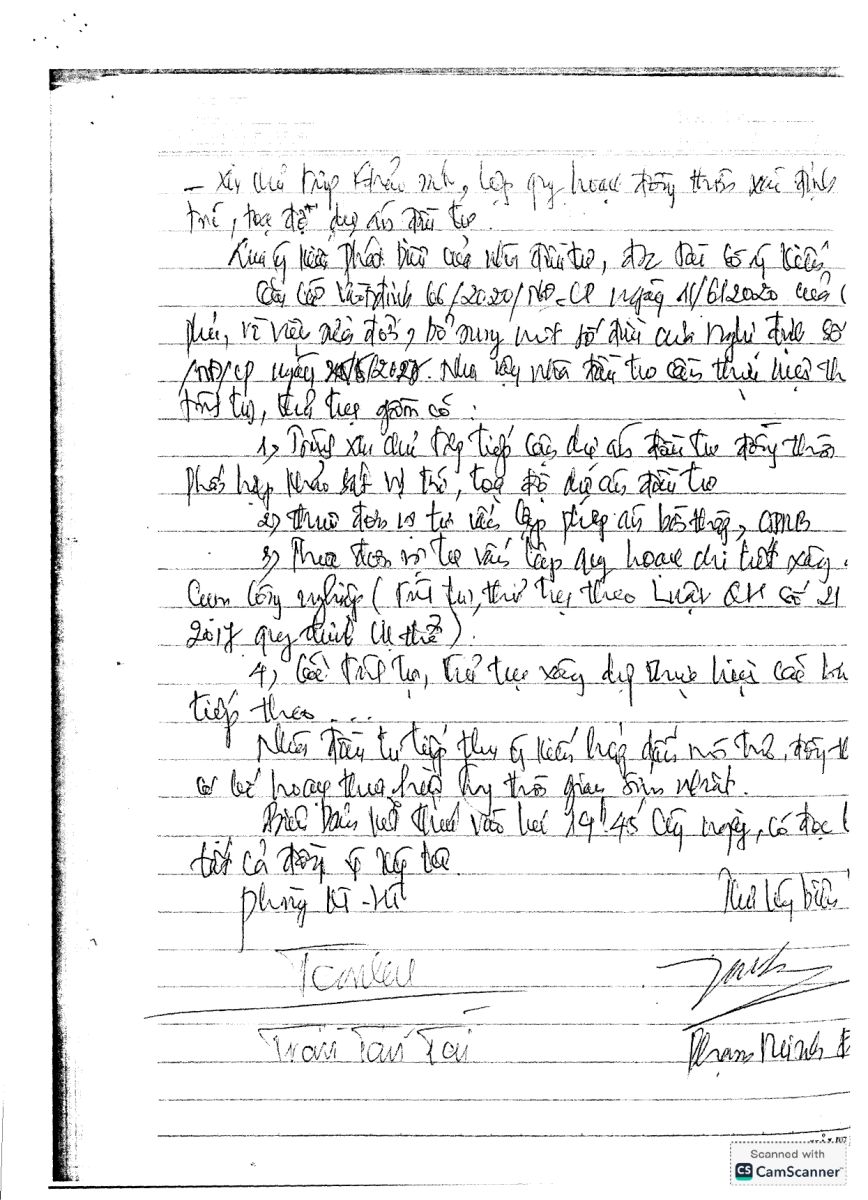 - Xin chủ trương khảo sát, lập quy hoạch đồng thời xác định
trí, tọa độ dự án đầu tư.
Qua ý kiến phát biểu của nhà đầu tư, đ/c Tài có ý kiến
Căn cứ Nghị định 66/2020/NĐ-CP ngày 11/6/2020 của
phủ, về việc sửa đổi, bổ sung một số điều của Nghị định số
/NĐ/CP ngày. Như vậy nhà đầu tư cần thực hiện th
trình tự, thủ tục gồm có:
1, xin chủ tiếp cận dự án đầu tư đồng thời
phối hợp khảo sát vị trí, tọa độ dự án đầu tư
2, thuê đơn vị tư vấn lập án bồi thường, GPMB
3, Thuê đơn vị tư vấn lập quy hoạch chi tiết xây
Cụm Công nghiệp (Trình tự, thủ tục theo Luật QH số 21
2017 quy định cụ thể).
4, Các trình tự, thủ tục xây dựng thực hiện các
tiếp theo....
Nhà đầu tư tiếp thu ý kiến đồng th
có kế hoạch thực hiện thời gian sớm nhất.
Biên bản kết thúc vào lúc 19h45 cùng ngày, có đọc l
tất cả đồng ý ký tên.
Phòng KT-HT
Thư ký biên
Trần Tấn Tài
Phạm Minh Đ
Scanned with
CS CamScanner